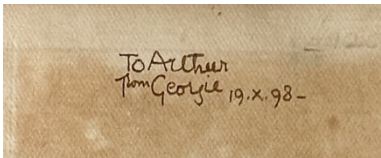 To Arthur
from Georgie 19.X.98–